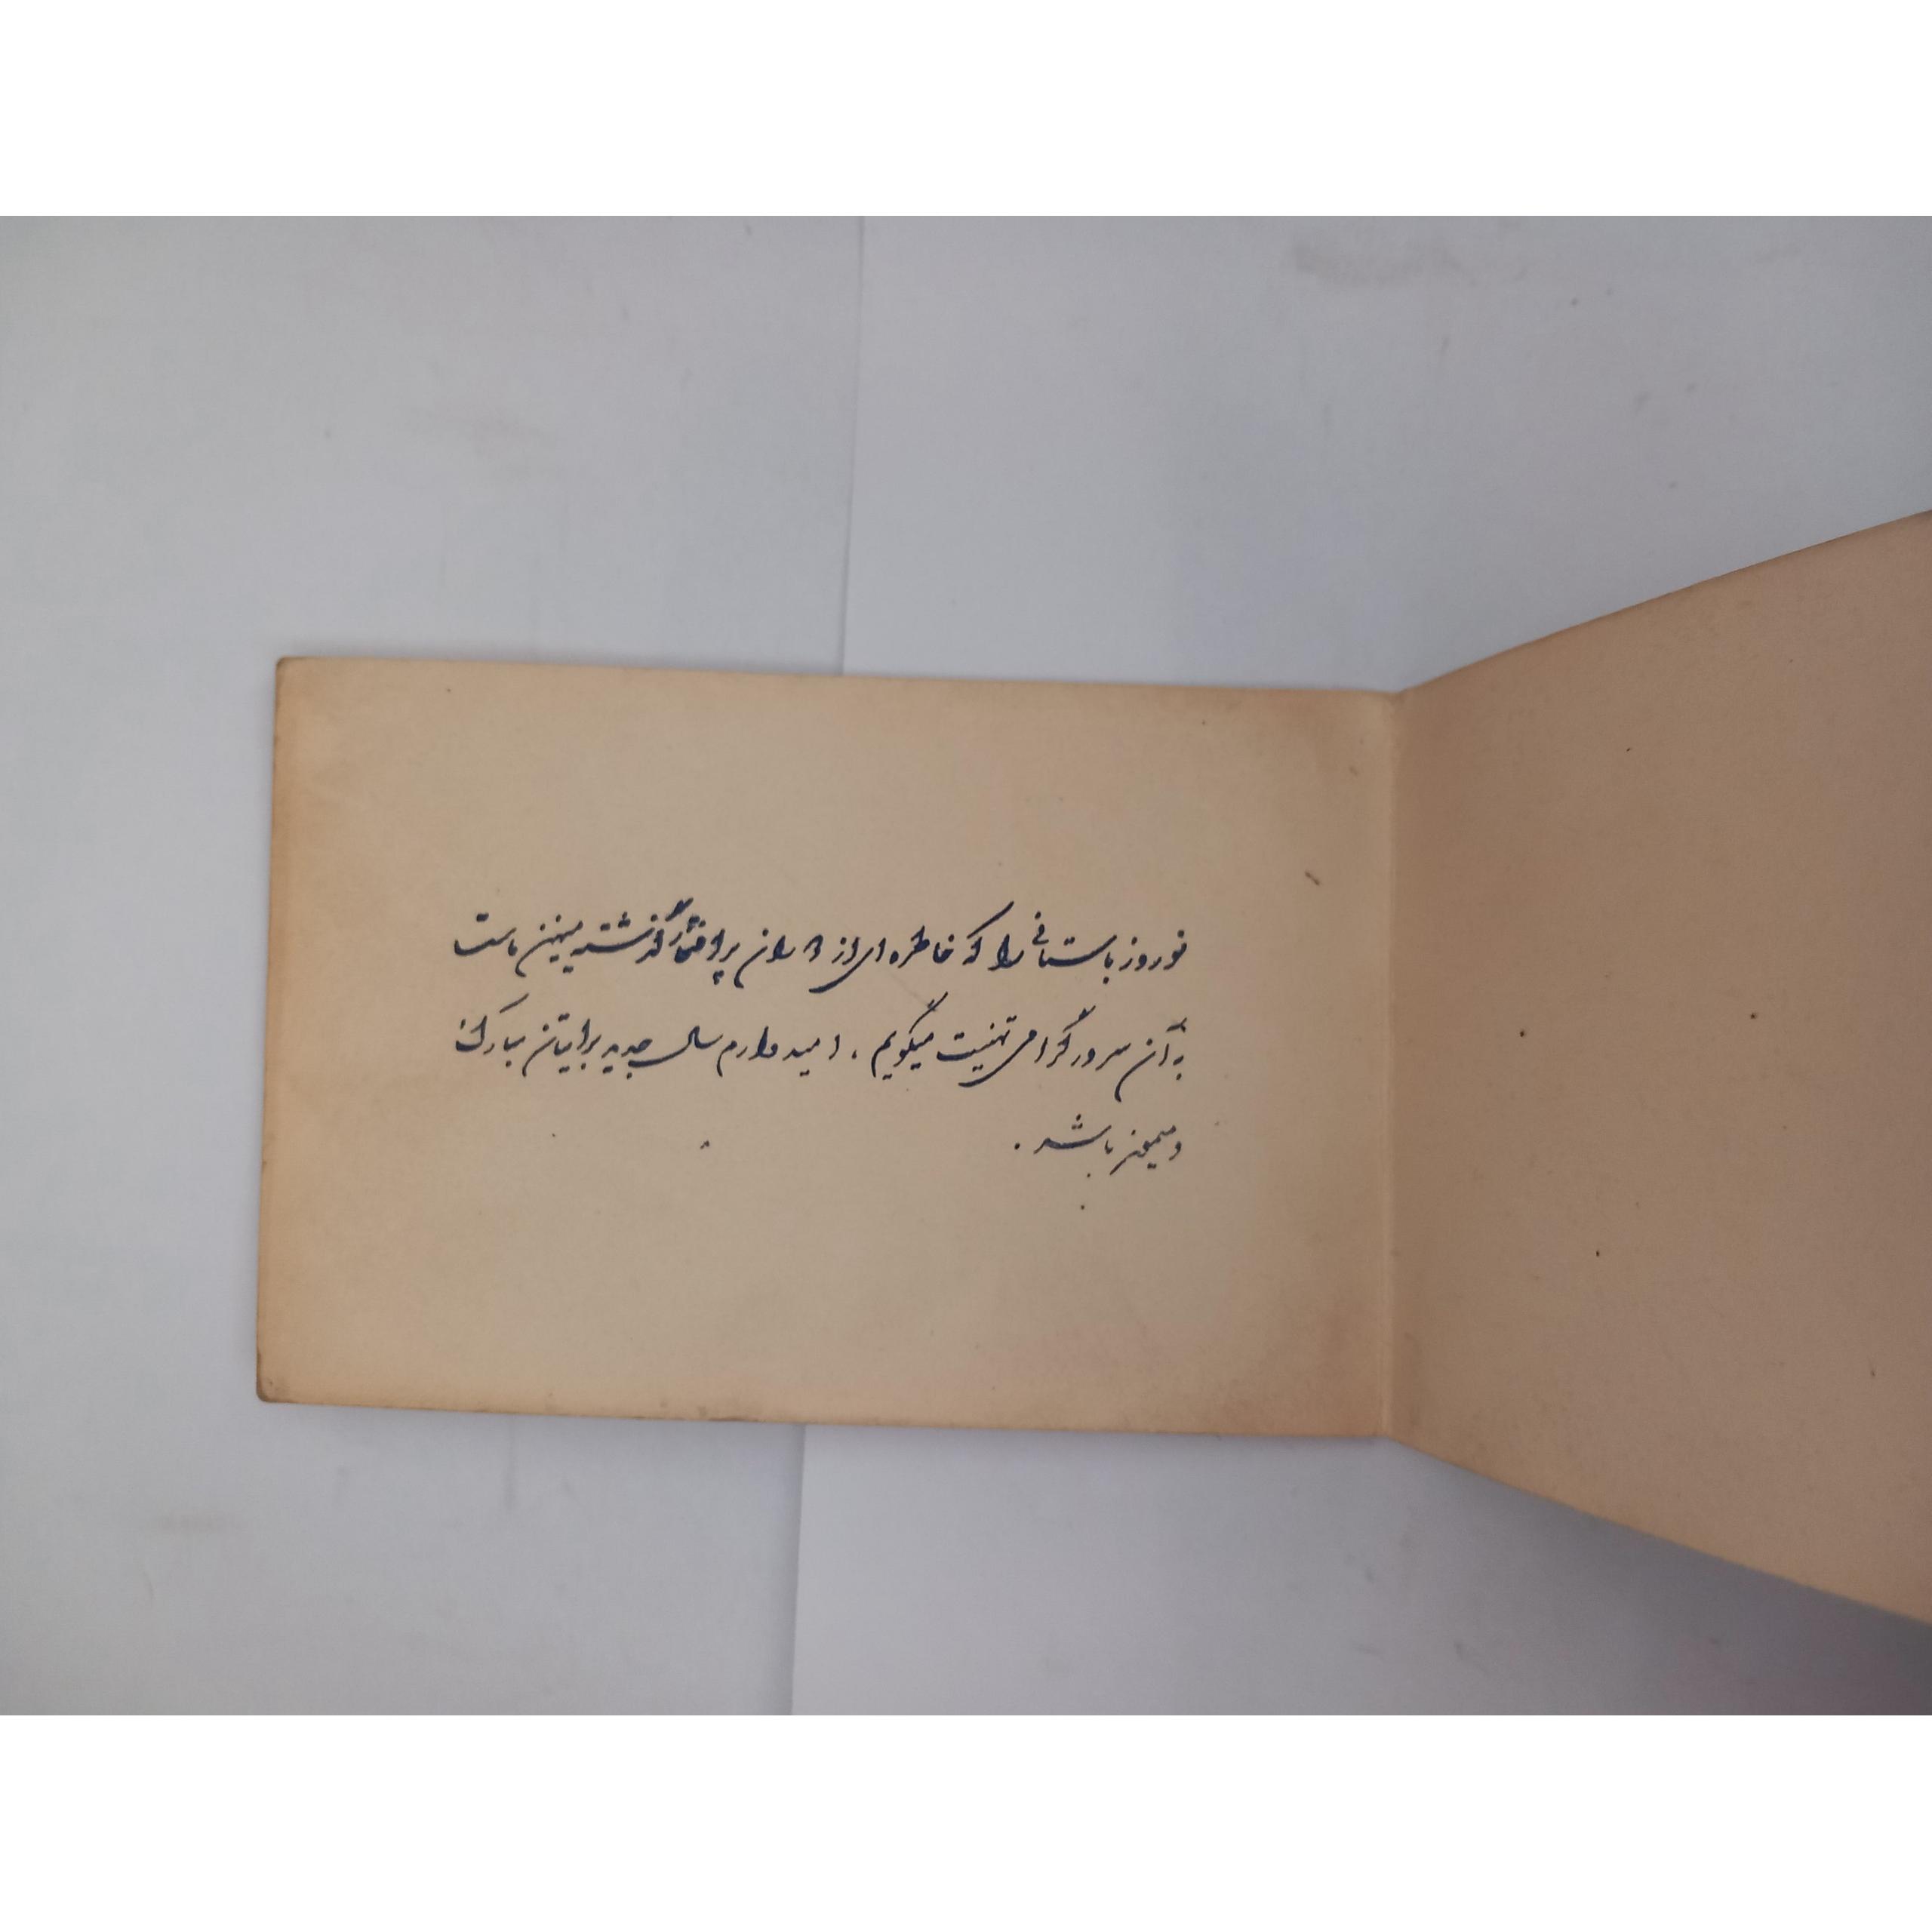 نوروز باستانی را که خاطره ای از دوران پر افتخار گذشته میهن ماست
به آن سرور گرامی تهنیت میگویم . امیدوارم سال جدید برایتان مبارک
و میمون باشد .